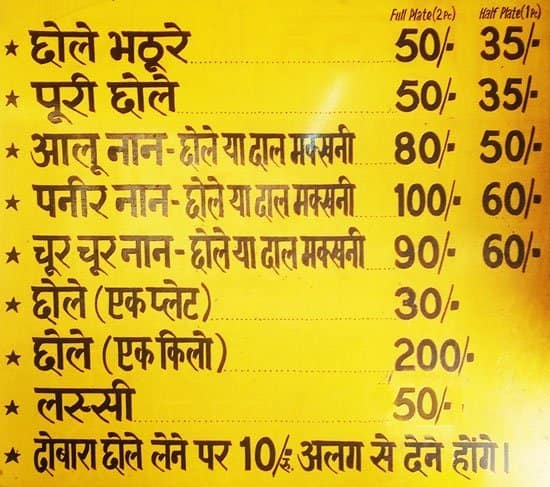 Full Plate (2 Pc.) Half Plate (1 Pc.)
★ छोले भठूरे 50/- 35/-
★ पूरी छोले 50/- 35/-
★ आलू नान - छोले या दाल मक्खनी 80/- 50/-
★ पनीर नान - छोले या दाल मक्खनी 100/- 60/-
★ चूर चूर नान - छोले या दाल मक्खनी 90/- 60/-
★ छोले (एक प्लेट) 30/-
★ छोले (एक किलो) 200/-
★ लस्सी 50/-
★ दोबारा छोले लेने पर 10/-रु. अलग से देने होंगे।